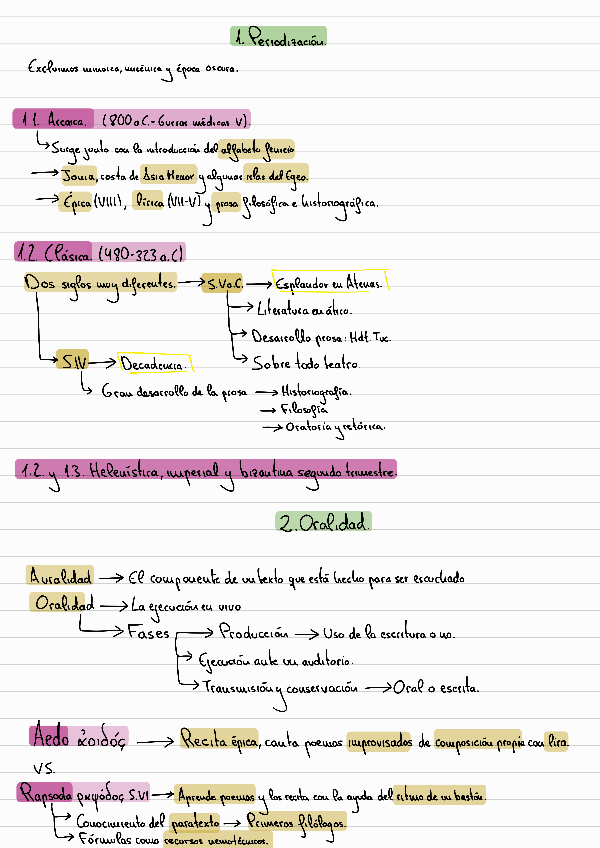 1. Periodización.
Excluimos minoica, micénica y época oscura.
1.1. Arcaica. (800 a.C.- Guerras médicas V)
Surge junto con la introducción del alfabeto fenicio
Jonia, costa de Asia Menor y algunas islas del Egeo.
Épica (VIII), lírica (VII-V) y prosa filosófica e historiográfica.
1.2. Clásica. (480-323 a.C)
Dos siglos muy diferentes. → S.V a.C. → Esplendor en Atenas.
Literatura en ático.
Desarrollo prosa: Hdt. Tuc.
S.IV → Decadencia. Sobre todo teatro.
Gran desarrollo de la prosa → Historiografía.
→ Filosofía
→ Oratoria y retórica.
1.2. y 1.3. Helenística, imperial y bizantina segundo trimestre.
2. Oralidad.
Auralidad → El componente de un texto que está hecho para ser escuchado
Oralidad → La ejecución en vivo
Fases → Producción → Uso de la escritura o no.
Ejecución ante un auditorio.
Transmisión y conservación → Oral o escrita.
Aedo ἀοιδός → Recita épica, canta poemas improvisados de composición propia con lira.
VS.
Rapsoda ῥαψῳδός S.VI → Aprende poemas y los recita con la ayuda del ritmo de un bastón.
Conocimiento del paratexto → Primeros filólogos.
Fórmulas como recursos nemotécnicos.